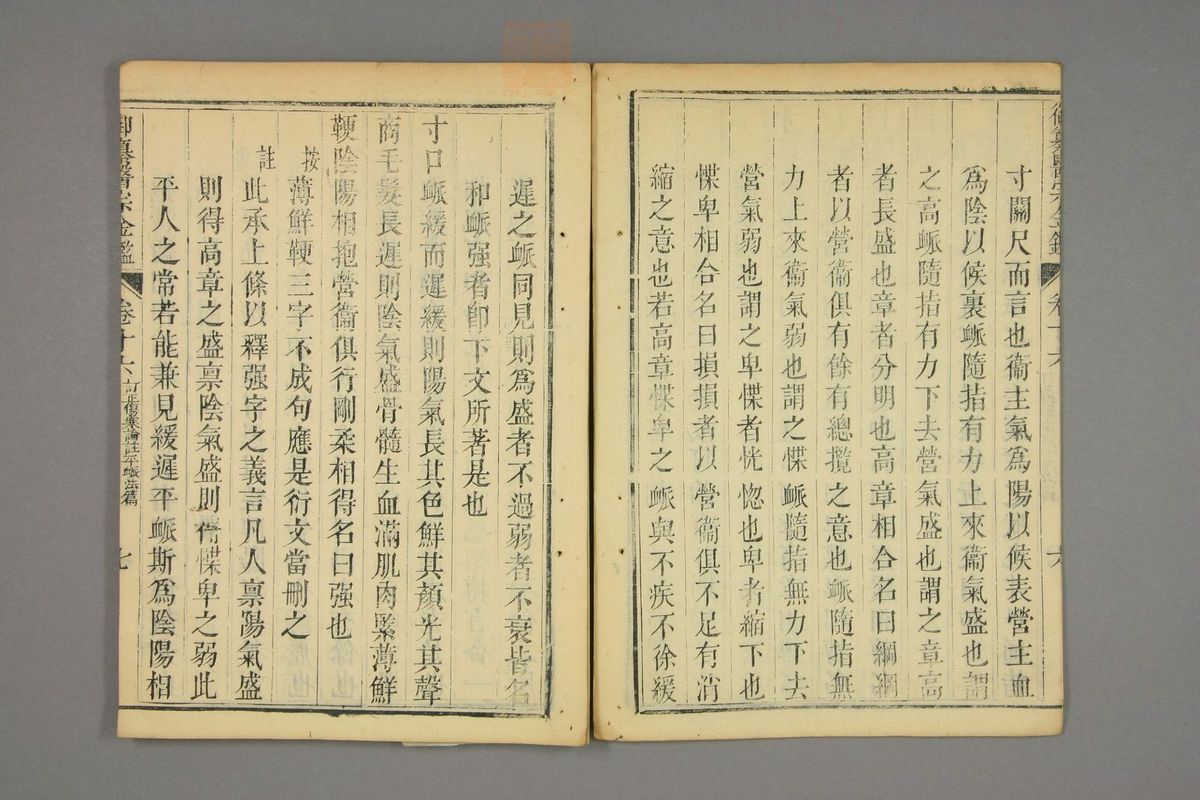 御纂醫宗金鑑 卷十六 六
寸關尺而言也衞主氣爲陽以候表營主血
爲陰以候裏䘑隨指有力上來衞氣盛也謂
之高䘑隨指有力下去營氣盛也謂之章高
者長盛也章者分明也高章相合名曰綱綱
者以營衞俱有餘有總攬之意也䘑隨指無
力上來衞氣弱也謂之惵䘑隨指無力下去
營氣弱也謂之卑惵者恍惚也卑者縮下也
惵卑相合名曰損損者以營衞俱不足有消
縮之意也若高章惵卑之䘑與不疾不徐緩
遲之䘑同見則爲盛者不過弱者不衰皆名
和䘑强者卽下文所著是也
寸口䘑緩而遲緩則陽氣長其色鮮其顏光其聲
商毛髮長遲則陰氣盛骨髓生血滿肌肉緊薄鮮
鞕陰陽相抱營衞俱行剛柔相得名曰强也
按薄鮮鞕三字不成句應是衍文當刪之
註此承上條以釋强字之義言凡人禀陽氣盛
則得高章之盛禀陰氣盛則得惵卑之弱此
平人之常若能兼見緩遲平䘑斯爲陰陽相
御纂醫宗金鑑 卷十六 訂正傷寒論註平䘑法篇 七